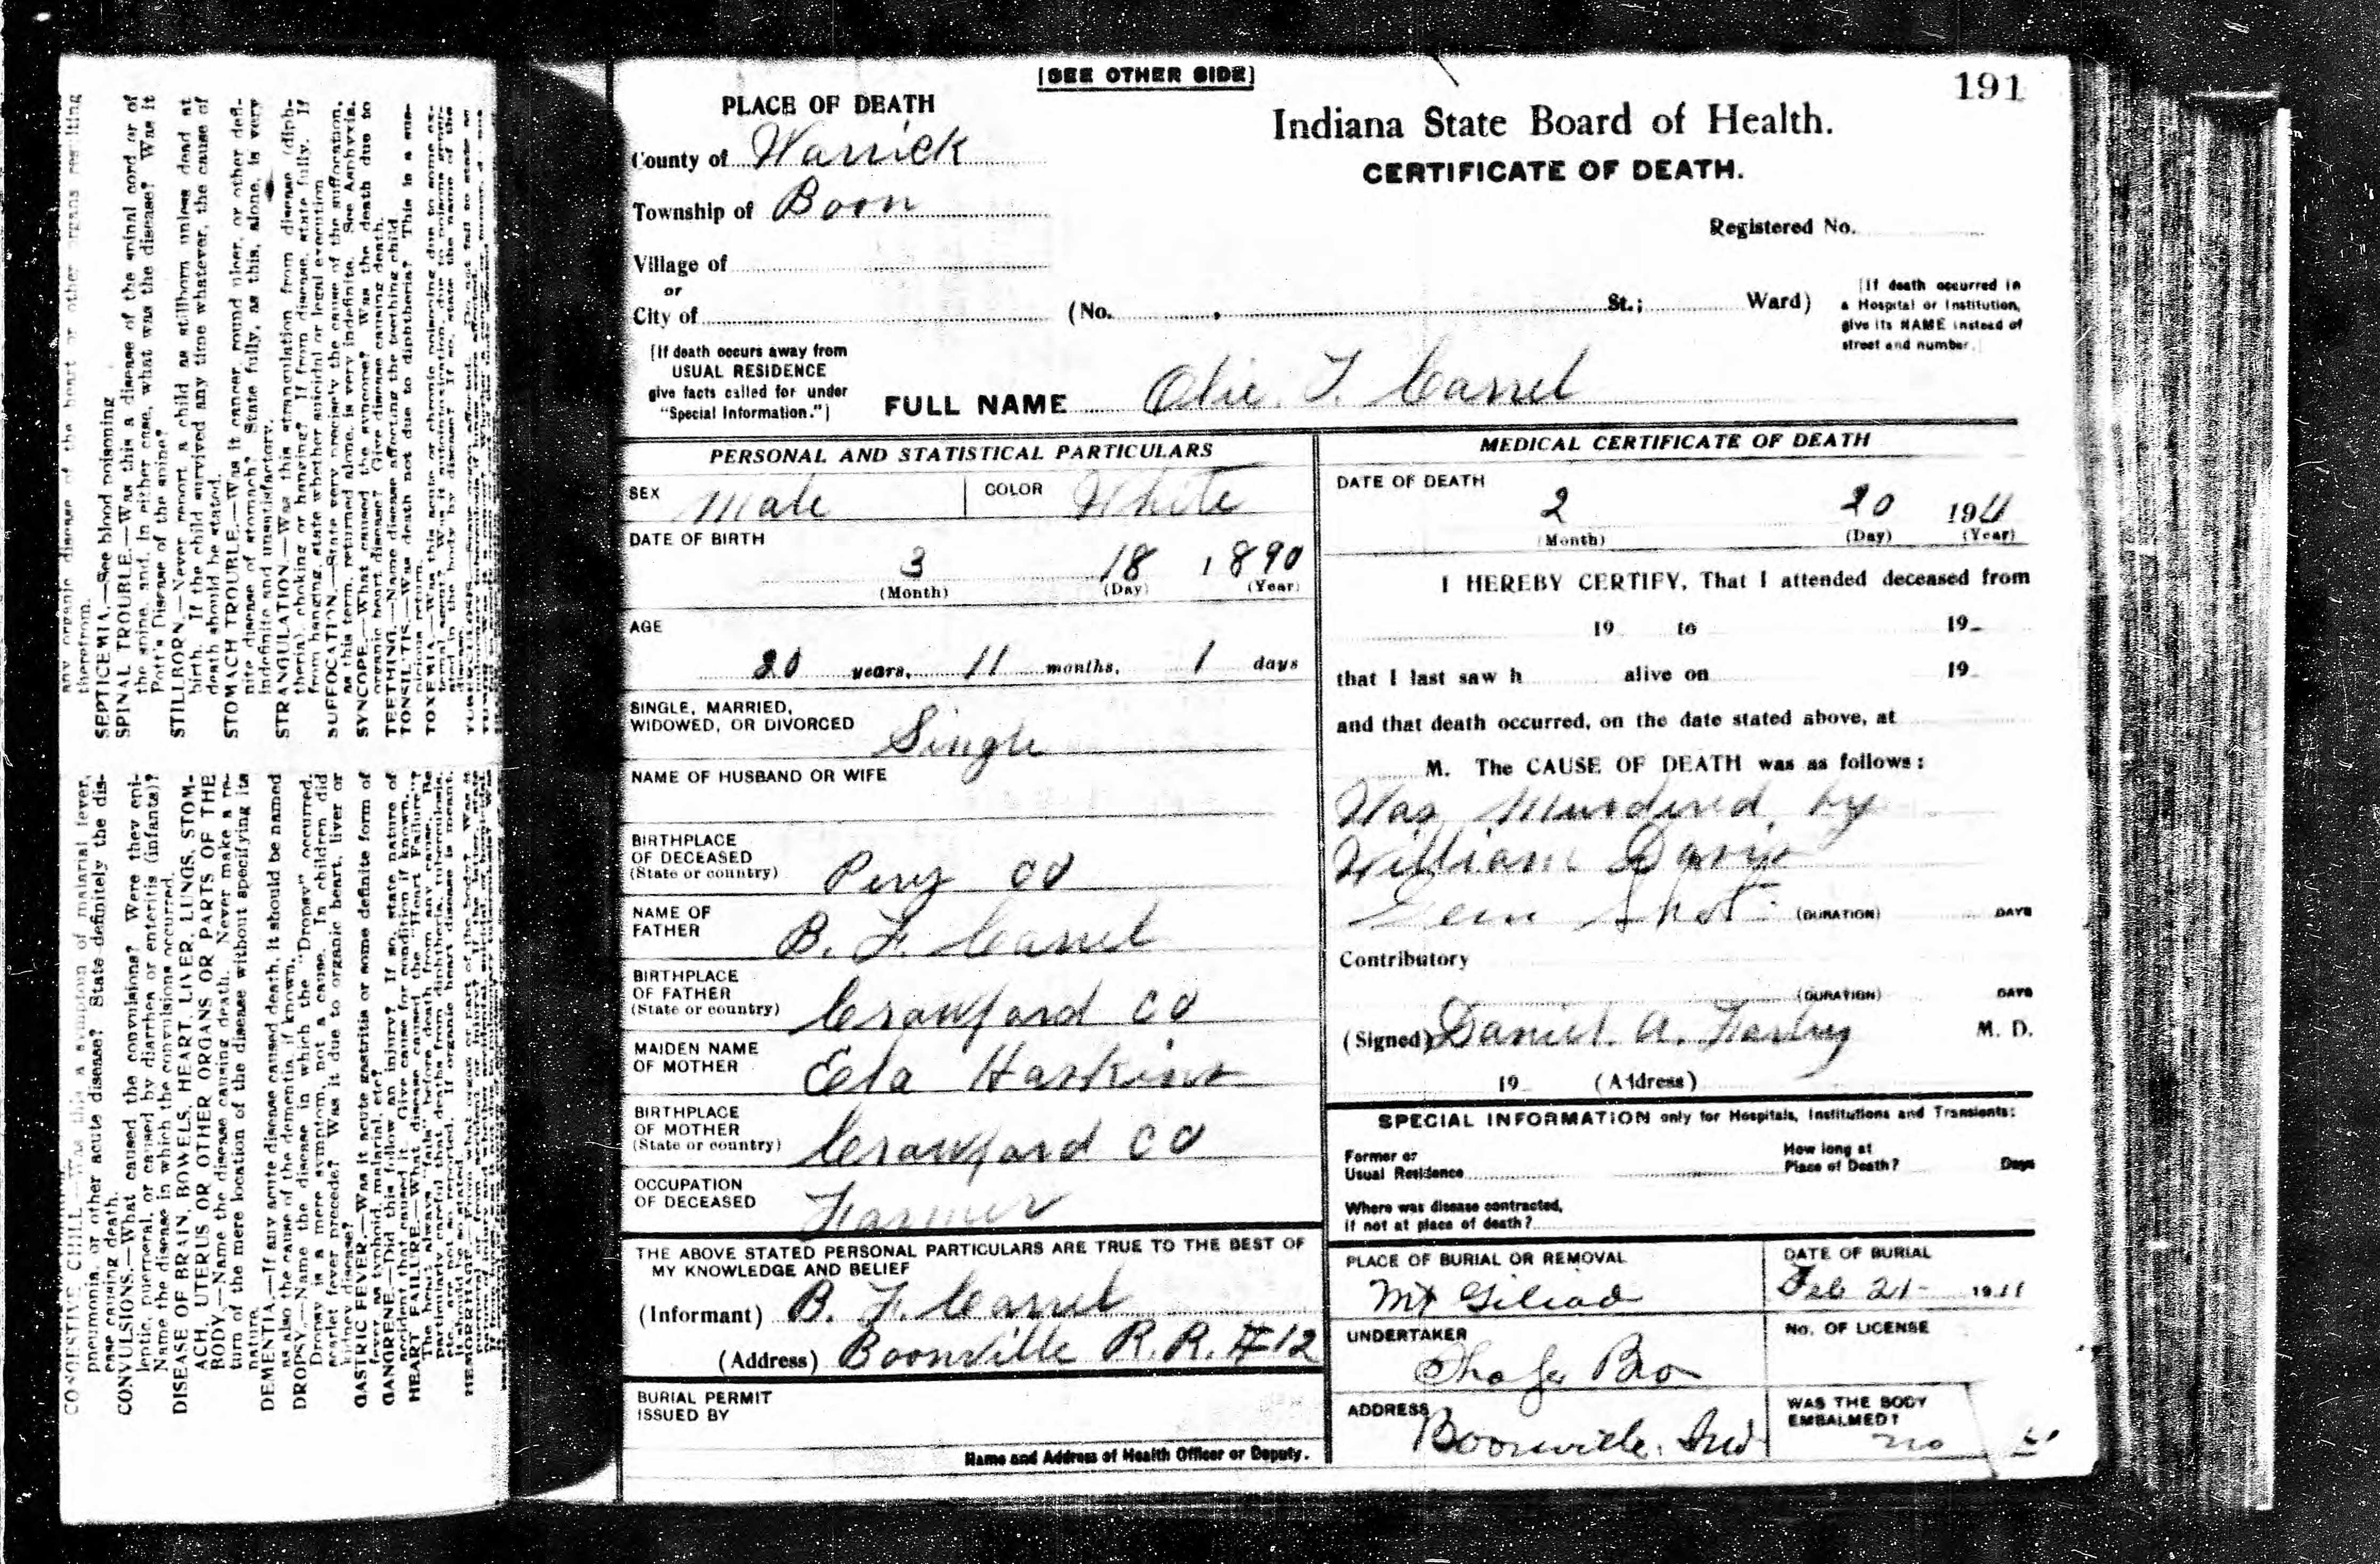 [SEE OTHER SIDE]
191
PLACE OF DEATH
Indiana State Board of Health.
CERTIFICATE OF DEATH.
County of Warrick
Township of Boon
Registered No.
Village of
or
City of (No. , St.; Ward)
[If death occurred in
a Hospital or Institution,
give its NAME instead of
street and number.]
[If death occurs away from
USUAL RESIDENCE
give facts called for under
"Special Information."]
FULL NAME Olie. F. Carrel
PERSONAL AND STATISTICAL PARTICULARS
SEX Male COLOR White
DATE OF BIRTH
3 18 1890
(Month) (Day) (Year)
AGE
20 years, 11 months, 1 days
SINGLE, MARRIED,
WIDOWED, OR DIVORCED Single
NAME OF HUSBAND OR WIFE
BIRTHPLACE
OF DECEASED
(State or country) Pery CO
NAME OF
FATHER B. F. Carrel
BIRTHPLACE
OF FATHER
(State or country) Crawford CO
MAIDEN NAME
OF MOTHER Ela Haskins
BIRTHPLACE
OF MOTHER
(State or country) Crawford CO
OCCUPATION
OF DECEASED Farmer
THE ABOVE STATED PERSONAL PARTICULARS ARE TRUE TO THE BEST OF
MY KNOWLEDGE AND BELIEF
(Informant) B. F. Carrel
(Address) Boonville R.R. #12
BURIAL PERMIT
ISSUED BY
Name and Address of Health Officer or Deputy.
MEDICAL CERTIFICATE OF DEATH
DATE OF DEATH
2 20 1911
(Month) (Day) (Year)
I HEREBY CERTIFY, That I attended deceased from
19 to 19
that I last saw h alive on 19
and that death occurred, on the date stated above, at
M. The CAUSE OF DEATH was as follows:
Was Murdired by
William Davis
Gun Shot (DURATION) DAYS
Contributory
(DURATION) DAYS
(Signed) Daniel. A. M. D.
19 (Address)
SPECIAL INFORMATION only for Hospitals, Institutions and Transients:
Former or
Usual Residence
How long at
Place of Death? Days
Where was disease contracted,
if not at place of death?
PLACE OF BURIAL OR REMOVAL
Mt Gilead
DATE OF BURIAL
Feb 21 - 1911
UNDERTAKER
Shafer Bro
No. OF LICENSE
ADDRESS
Boonville. Ind
WAS THE BODY
EMBALMED?
no
any organic disease of the heart or other organs resulting
therefrom.
SEPTICEMIA.—See blood poisoning
SPINAL TROUBLE.—Was this a disease of the spinal cord or of
the spine, and, in either case, what was the disease? Was it
Pott's Disease of the spine?
STILLBORN.—Never report a child as stillborn unless dead at
birth. If the child survived any time whatever, the cause of
death should be stated.
STOMACH TROUBLE.—Was it cancer, round ulcer, or other defi-
nite disease of stomach? State fully, as this, alone, is very
indefinite and unsatisfactory.
STRANGULATION.—Was this strangulation from disease (diph-
theria), choking or hanging? If from disease, state fully. If
from hanging, state whether suicidal or legal execution
SUFFOCATION.—State very precisely the cause of the suffocation,
as this term, returned alone, is very indefinite. See Asphyxia.
SYNCOPE.—What caused the syncope? Was the death due to
organic heart disease? Give disease causing death.
TEETHING.—Name disease affecting the teething child
TONSILITIS.—Was death not due to diphtheria? This is a sus-
picious return.
pneumonia, or other acute disease? State definitely the dis-
ease causing death.
CONVULSIONS.—What caused the convulsions? Were they epi-
leptic, puerperal, or caused by diarrhea or enteritis (infants)?
Name the disease in which the convulsions occurred.
DISEASE OF BRAIN, BOWELS, HEART, LIVER, LUNGS, STOM-
ACH, UTERUS OR OTHER ORGANS OR PARTS OF THE
BODY.—Name the disease causing death. Never make a re-
turn of the mere location of the disease without specifying its
nature.
DEMENTIA.—If any acute disease caused death, it should be named
as also the cause of the dementia, if known.
DROPSY.—Name the disease in which the "Dropsy" occurred.
Dropsy is a mere symptom, not a cause. In children did
scarlet fever precede? Was it due to organic heart, liver or
kidney disease?
GASTRIC FEVER.—Was it acute gastritis or some definite form of
fever, as typhoid, malarial, etc?
GANGRENE.—Did this follow an injury? If so, state nature of
accident that caused it. Give cause for condition if known.
HEART FAILURE.—What disease caused the "Heart Failure"?